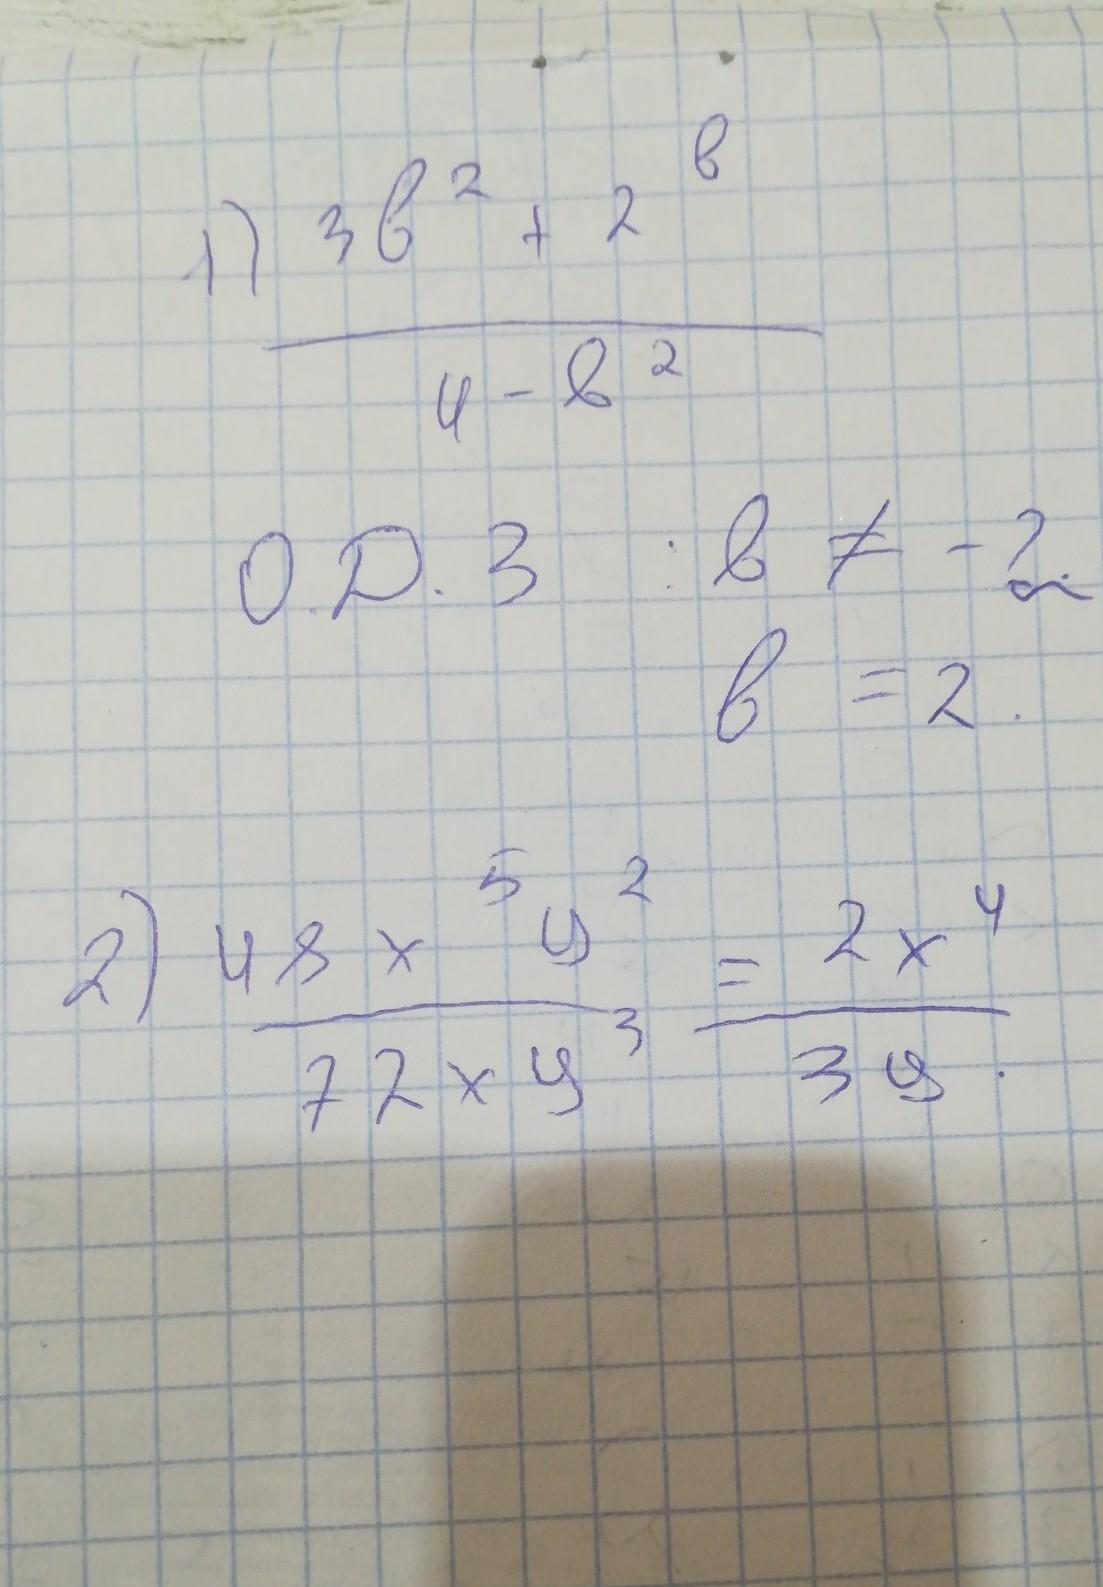 1) 3b² + 2ᵇ
4 - b²
О.Д.З : b ≠ -2
b = 2.
2) 48x⁵y² = 2x⁴
72xy³ 3y.